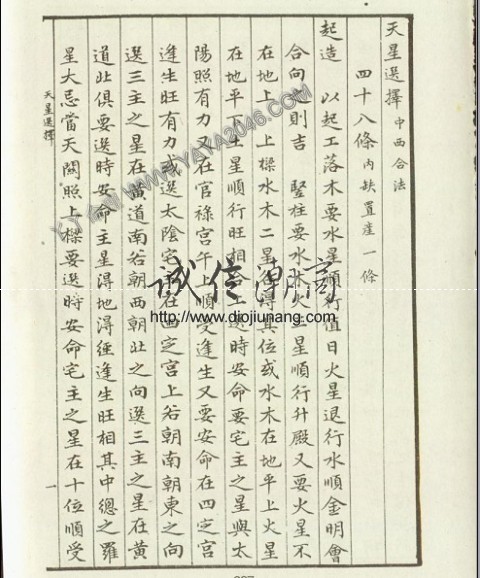 天星選擇 中西合法
四十八條 內缺置產一條
起造 以起工落木要水星順行值日火星退行水順金明會
合向之則吉 豎柱要水木火土星順行升殿又要火星不
在地上 上樑水木二星要得其位或水木在地平上火星
在地平下土星順行旺相合上選時安命要宅主之星與太
陽照有力又在官祿宮午上順受逢生又要安命在四定宮
逢生旺有力或選太陰宅主在四定宮上若朝南朝東之向
選三主之星在黃道南若朝西朝北之向選三主之星在黃
道北俱要選時安命主星得地得經逢生旺相其中總之羅
星大忌當天關照上樑要選時安命宅主之星在十位順受
天星選擇
一
YY合成 WWW.YAYA2046.COM
誠信潮商
www.diojiunang.com